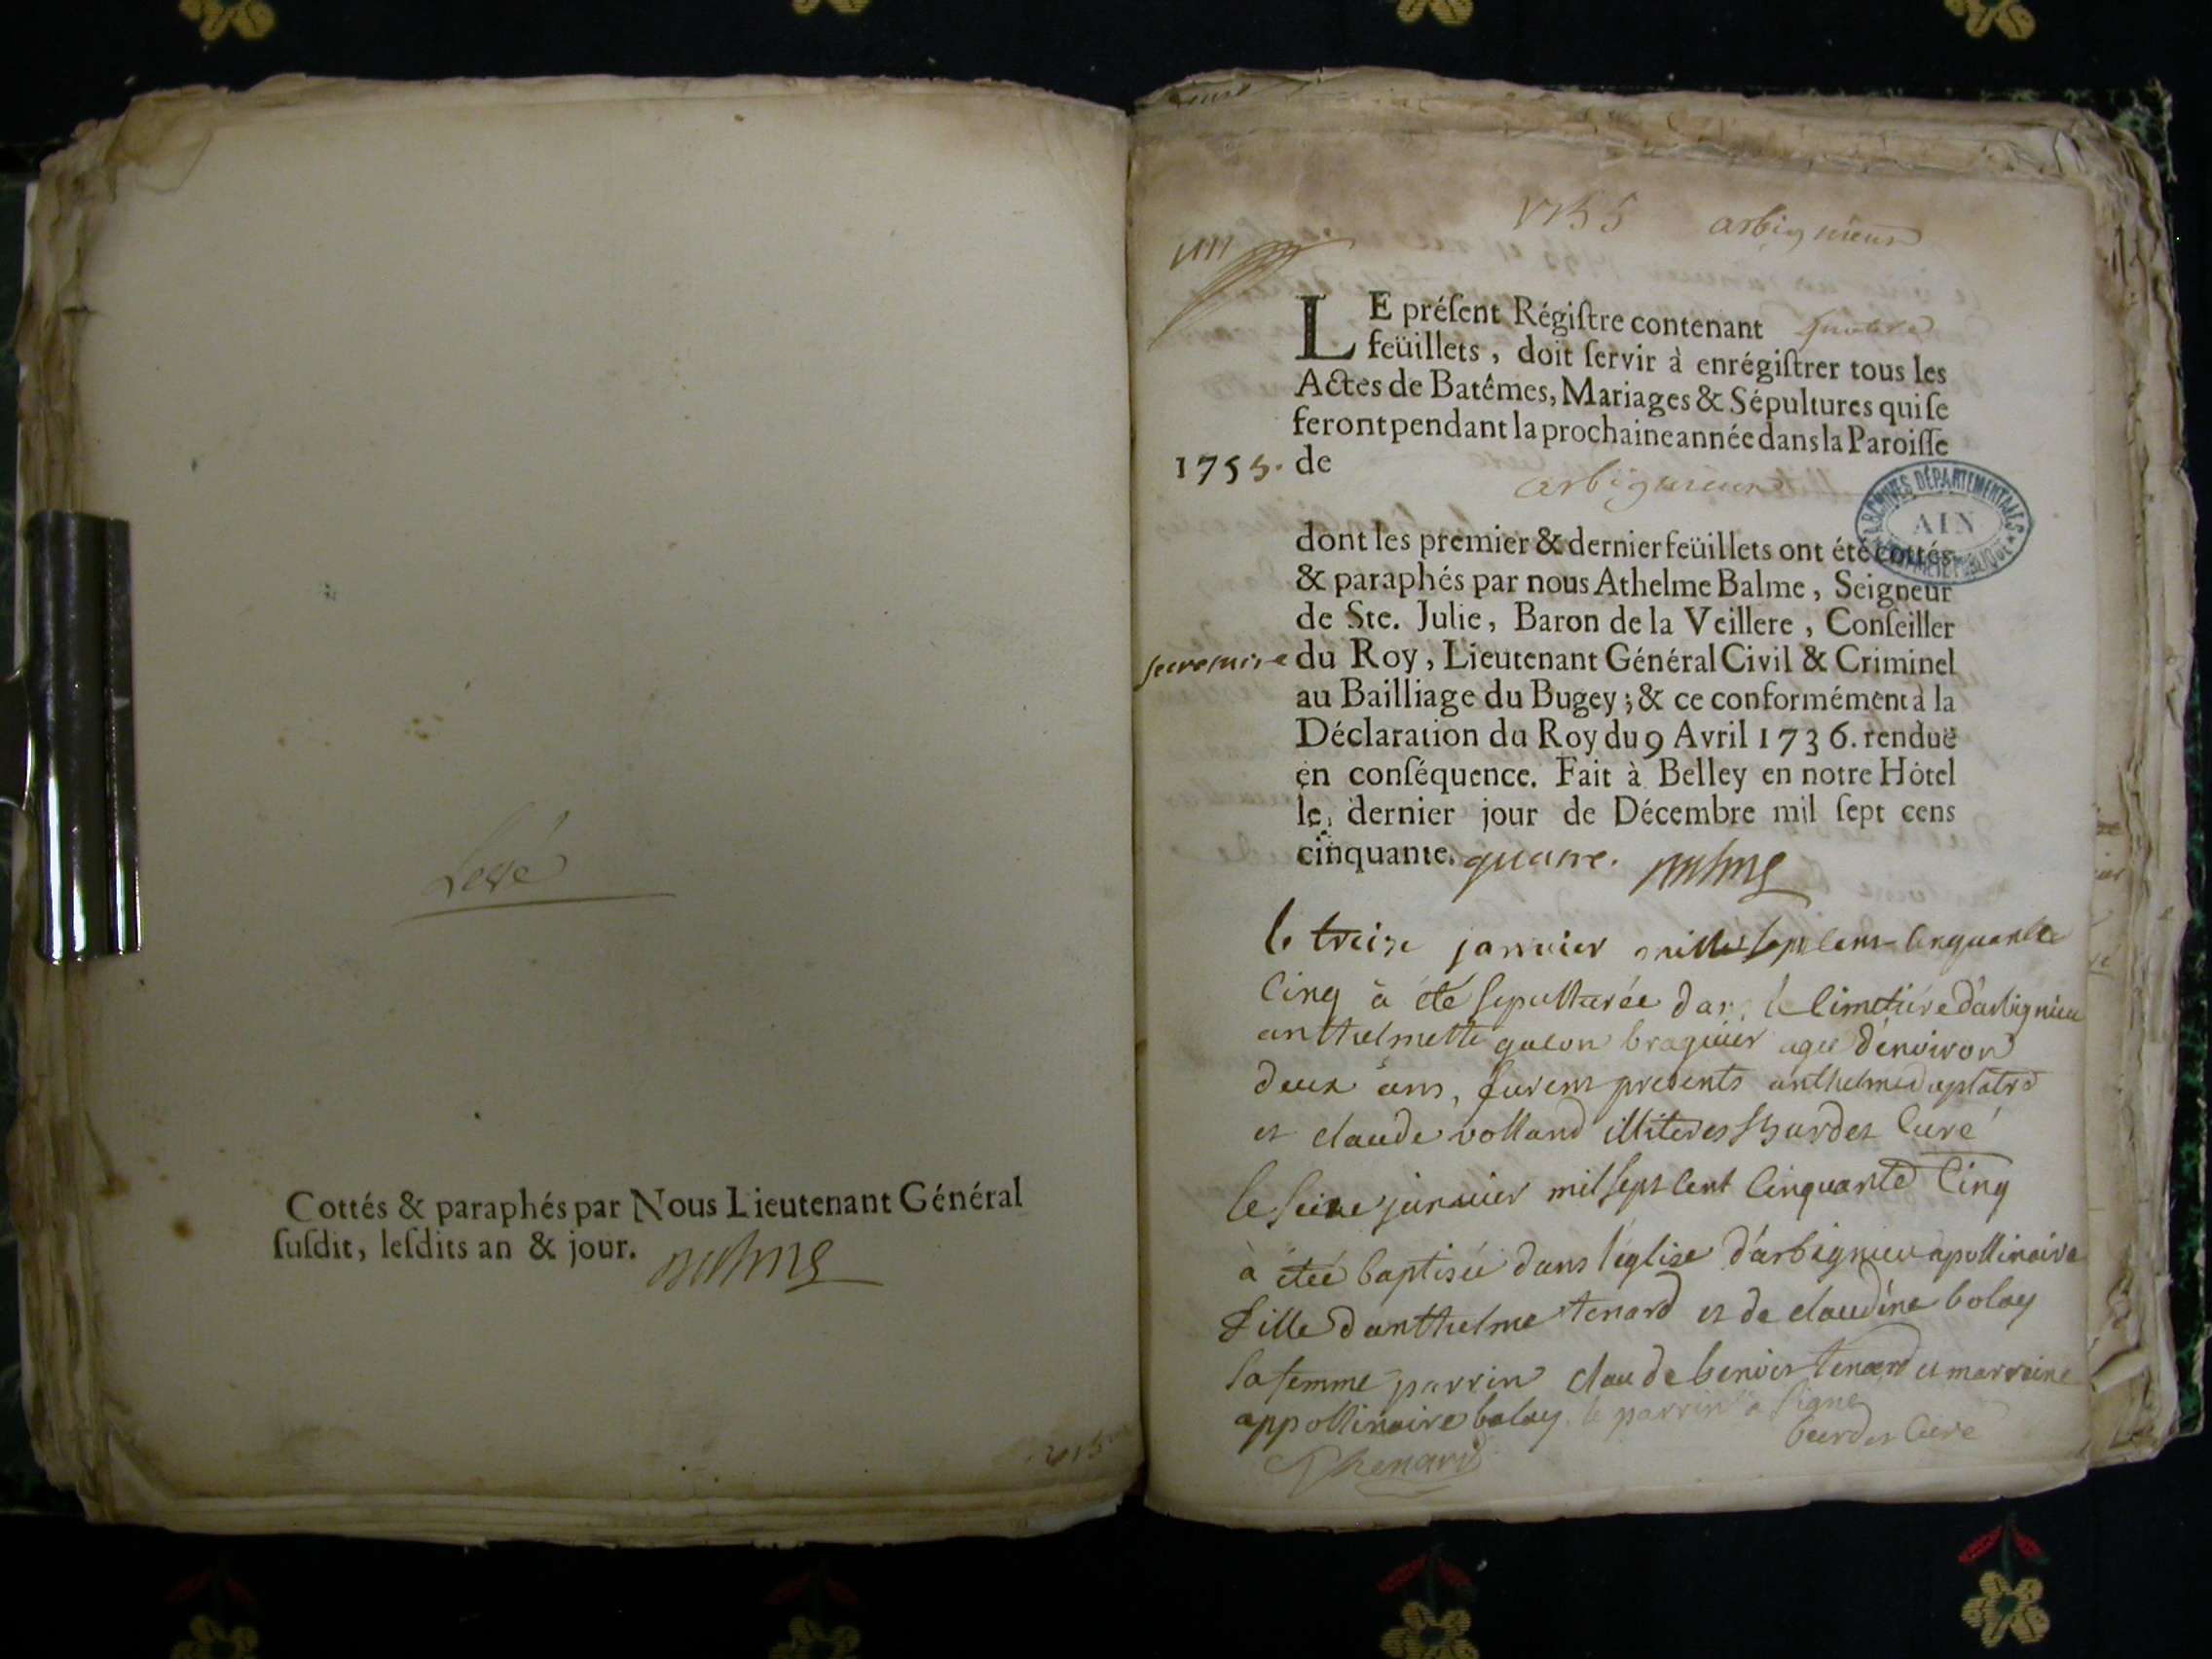 Levé
Cottés & paraphés par Nous Lieutenant Général
ſuſdit, leſdits an & jour. Balme
1755 arbignieux
un
LE préſent Régiſtre contenant quatre
feüillets, doit ſervir à enrégiſtrer tous les
Actes de Batêmes, Mariages & Sépultures qui ſe
feront pendant la prochaine année dans la Paroiſſe
1755. de
arbignieux
ARCHIVES DÉPARTEMENTALES
AIN
PROPRIÉTÉ PUBLIQUE
dont les premier & dernier feüillets ont été cottés
& paraphés par nous Athelme Balme, Seigneur
de Ste. Julie, Baron de la Veillere, Conſeiller
secretaire du Roy, Lieutenant Général Civil & Criminel
au Bailliage du Bugey; & ce conformément à la
Déclaration du Roy du 9 Avril 1736. renduë
en conſéquence. Fait à Belley en notre Hôtel
le dernier jour de Décembre mil ſept cens
cinquante. quatre. Balme
le treize janvier mille sept cens cinquante
cinq à été sepulturée dans le cimetiere d'arbignieu
anthelmette braguier agée d'environ
deux ans, furent presents anthelme
et claude volland illiteres Burdet curé
le seize janvier mil sept cent cinquante cinq
à étée baptisée dans l'église d'arbignieu apollinaire
fille danthelme tenard et de claudine bolay
sa femme parrin claude benoit tenard et marraine
appollinaire bolay le parrin à signe
Burdet curé
Thenard